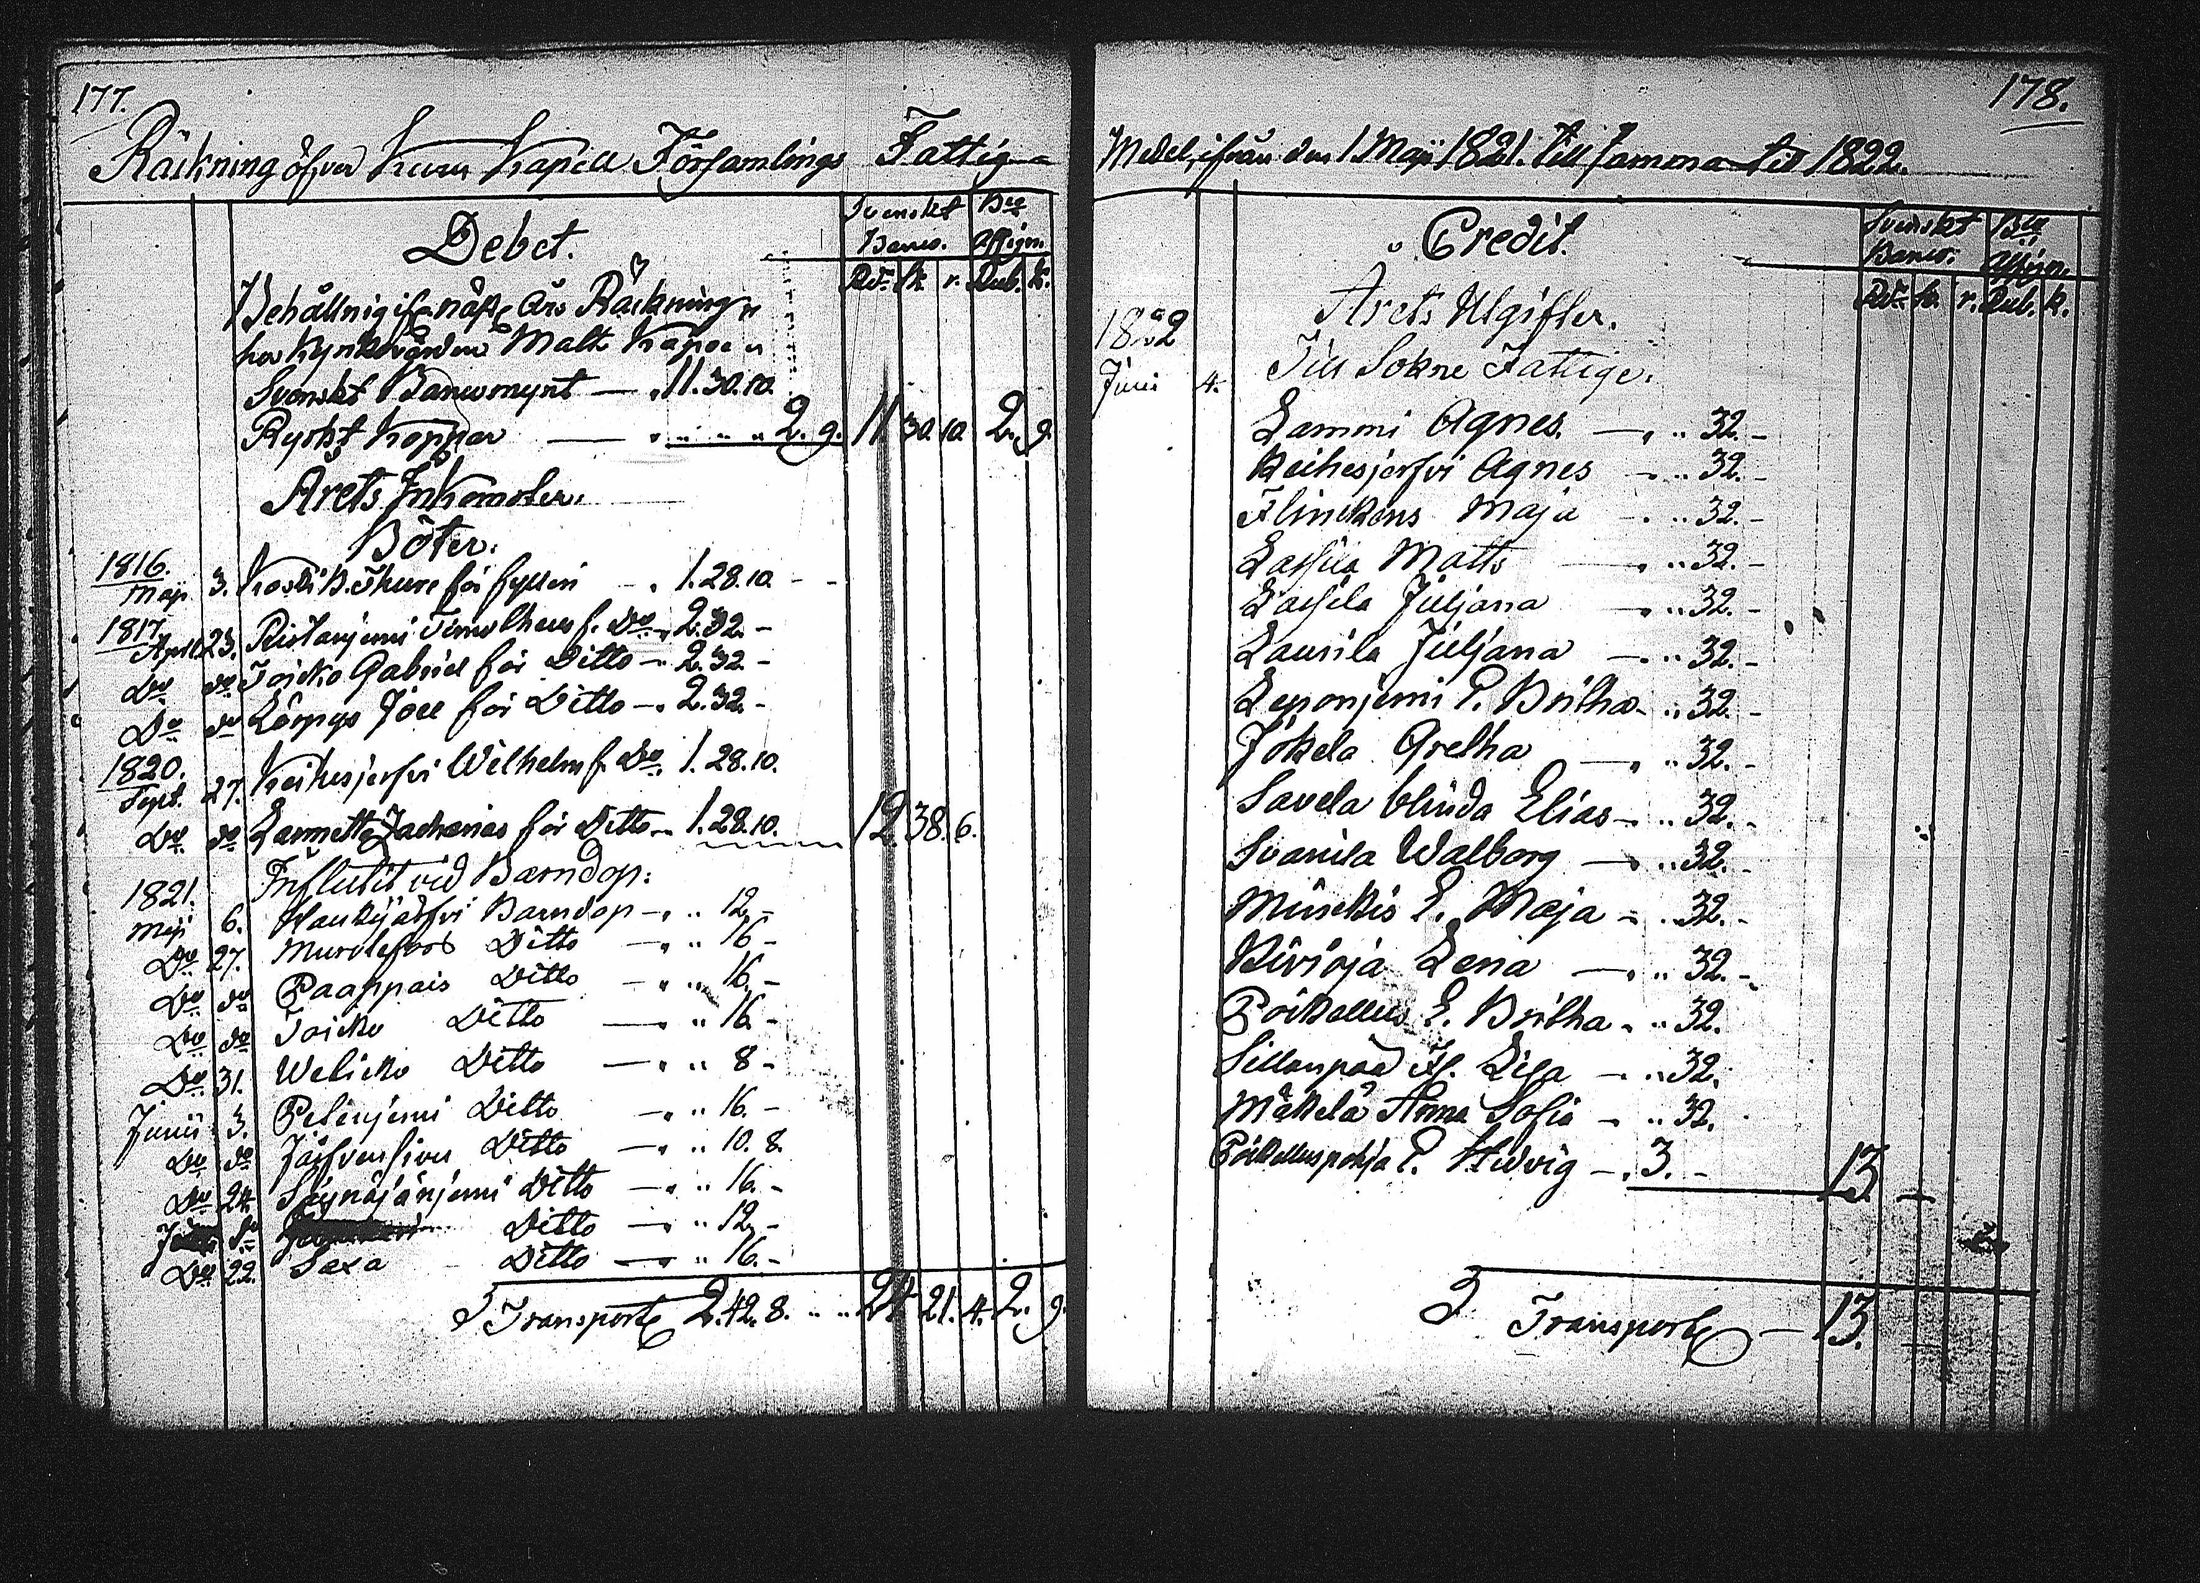 177.
Räkning öfver Kuru Kapell Församlings Fattig
Debet.
Svenskt Banco. Bco Assign.
Rdr. sk. r. Rub. k.
Behållnig ifr. näst. års Räkning
hos Kyrkovärden Matts
Svenskt Bancomynt — 11. 30. 10.
Ryskt Koppar — 2. 9. 11 30. 10. 2. 9.
Årets Inkomster.
Böter.
1816.
Maji 3. Koski B. Thure för fylleri — 1. 28. 10. -
1817.
April 23. Ristanjemi Timotheus f. Do 2. 32. -
Do do Toicko Gabriel för Ditto — 2. 32. -
Do do Lörpys Joel för Ditto — 2. 32. -
1820.
Sept. 27. Keihesjerfvi Wilhelm f. Do. 1. 28. 10.
Do do Zacharias för Ditto — 1. 28. 10. 12. 38. 6.
Influtit vid Barndop:
1821.
Maji 6. Haukijärfvi Barndop — " 12. -
Do 27. Murolefors Ditto — " 16 -
Do do Paappais Ditto — " 16. -
Do do Toicko Ditto — " 16. -
Do 31. Welicko Ditto — " 8 -
Junii 3. Petenjemi Ditto — " 16. -
Do do Ditto — " 10. 8.
Do 24. Ditto — " 16. -
do Ditto — " 12. -
Do 22. Saxa Ditto — " 16. -
Transport 2. 42. 8. 24 21. 4. 2. 9.
178.
Medel, ifrån den 1. Maji 1821. till samma tid 1822.
Credit.
Svenskt Banco. Bco Assign.
Rdr. sk. r. Rub. k.
Årets Utgifter.
1822
Till Sokne Fattige.
Junii 4.
Lammi Agnes. — " 32. -
Keihesjerfvi Agnes — " 32. -
Flinckens Maja — " 32. -
Lassila Matts — " 32. -
Lassila Juljana — " 32. -
Laurila Juljana — " 32. -
Leponjemi P. Britha " 32. -
Jokela Gretha — " 32. -
Savela blinda Elias — " 32. -
Svanila Walborg — " 32. -
Minckis E. Maja — " 32. -
Kivioja Lena — " 32. -
Poikellus E. Britha — " 32.
Sillanpää Lisa — " 32.
Mäkelä Anna Sofia — " 32.
Poikelluspohja P. Hedvig — 3. - 13 —
Transport — 13.